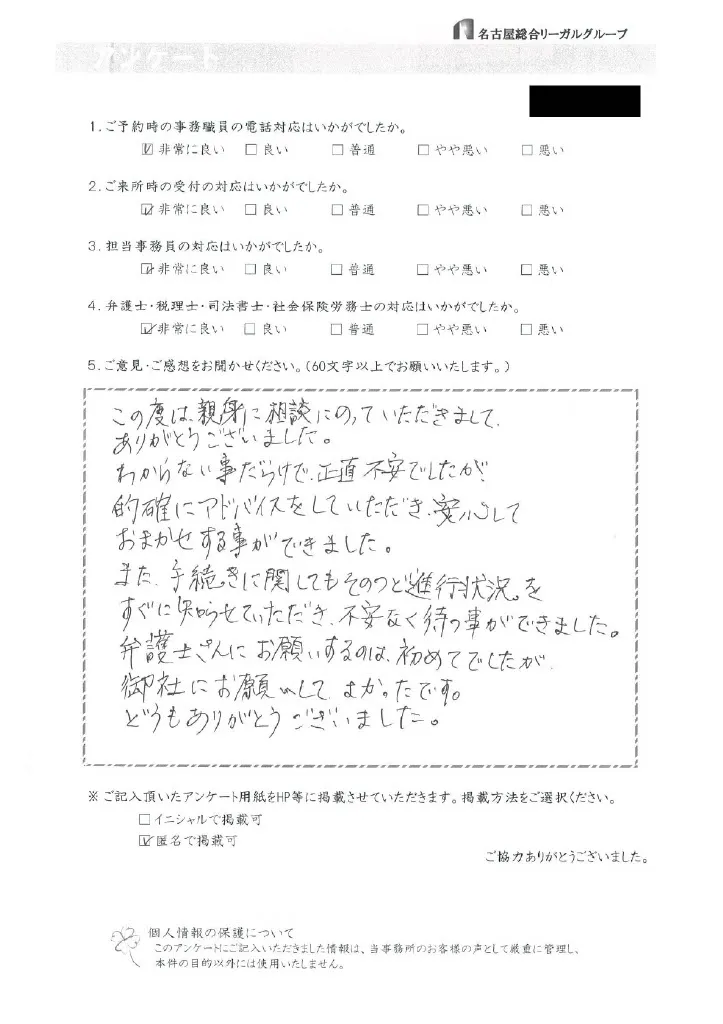 名古屋総合リーガルグループ
アンケート
1.ご予約時の事務職員の電話対応はいかがでしたか。
☑非常に良い □良い □普通 □やや悪い □悪い
2.ご来所時の受付の対応はいかがでしたか。
☑非常に良い □良い □普通 □やや悪い □悪い
3.担当事務員の対応はいかがでしたか。
☑非常に良い □良い □普通 □やや悪い □悪い
4.弁護士・税理士・司法書士・社会保険労務士の対応はいかがでしたか。
☑非常に良い □良い □普通 □やや悪い □悪い
5.ご意見・ご感想をお聞かせください。(60文字以上でお願いいたします。)
この度は、親身に相談にのっていただきまして、
ありがとうございました。
わからない事だらけで、正直不安でしたが
的確にアドバイスをしていただき、安心して
おまかせする事ができました。
また、手続きに関してもそのつど進行状況を
すぐに知らせていただき、不安なく待つ事ができました。
弁護士さんにお願いするのは、初めてでしたが、
御社にお願いしてよかったです。
どうもありがとうございました。
※ご記入頂いたアンケート用紙をHP等に掲載させていただきます。掲載方法をご選択ください。
□イニシャルで掲載可
☑匿名で掲載可
ご協力ありがとうございました。
個人情報の保護について
このアンケートにご記入いただきました情報は、当事務所のお客様の声として厳重に管理し、
本件の目的以外には使用いたしません。